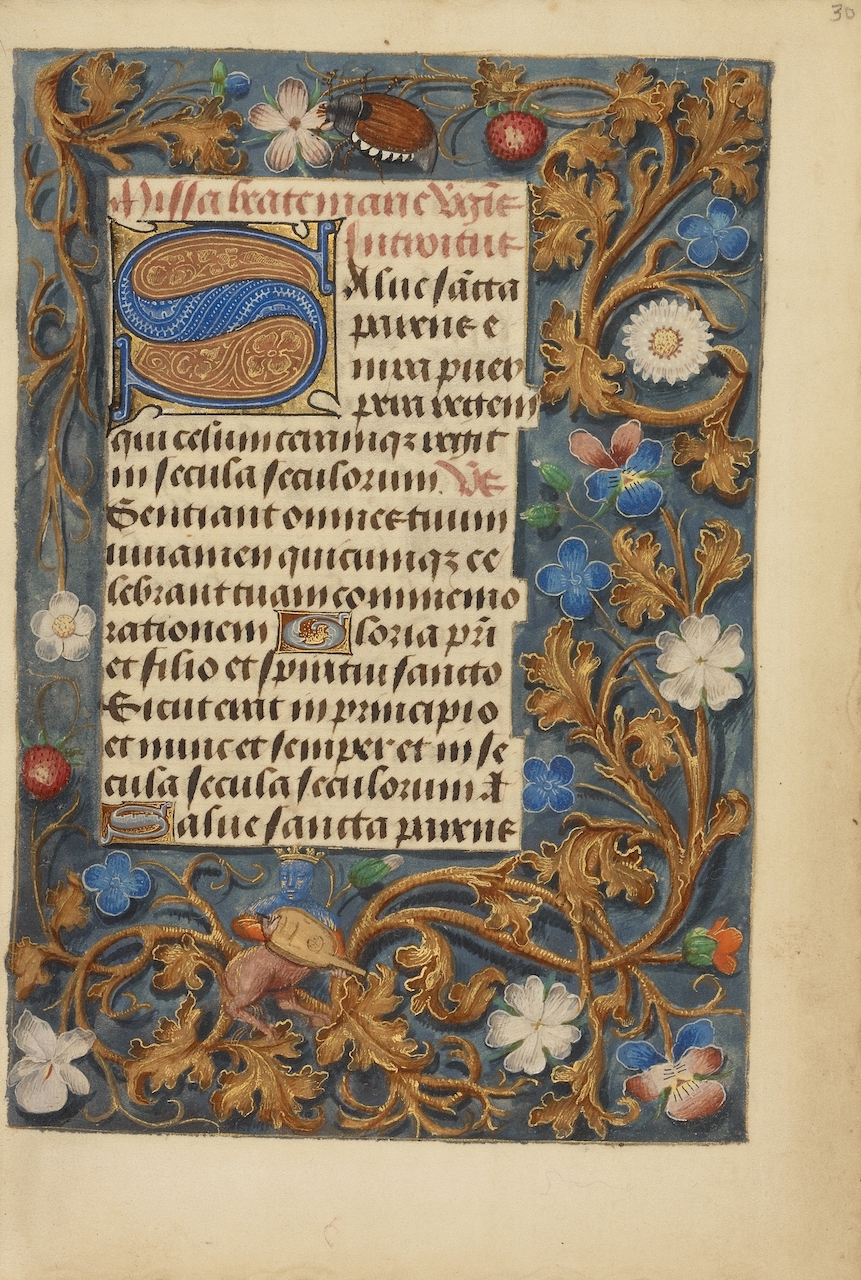 30
Missa beate marie v̄gīs
Introitus
Salue sācta
parens e
nixa puer
pera regem
qui celum terramqꝫ regit
in secula seculorum. V̄s
Sentiant omnes tuum
iuuamen quicumqꝫ ce
lebrant tuam commemo
rationem Gloria pr̄i
et filio et spiritui sancto
Sicut erat in principio
et nunc et semper et in se
cula secula seculorum A
Salue sancta parens